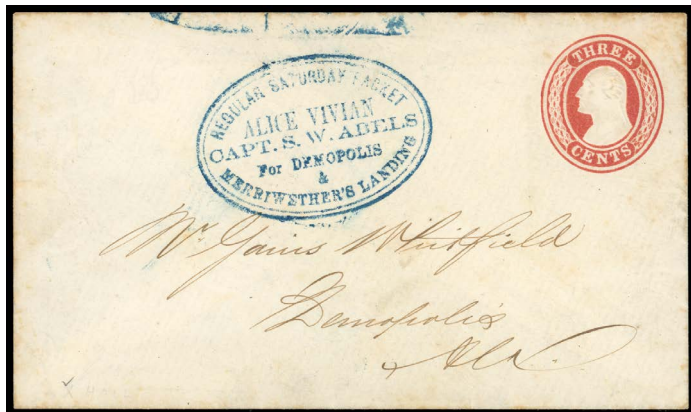 REGULAR SATURDAY PACKET
ALICE VIVIAN
CAPT. S. W. ABELS
For DEMOPOLIS
&
MERRIWETHER'S LANDING
THREE
CENTS
Mr Gaius Whitfield
Demopolis
Ala